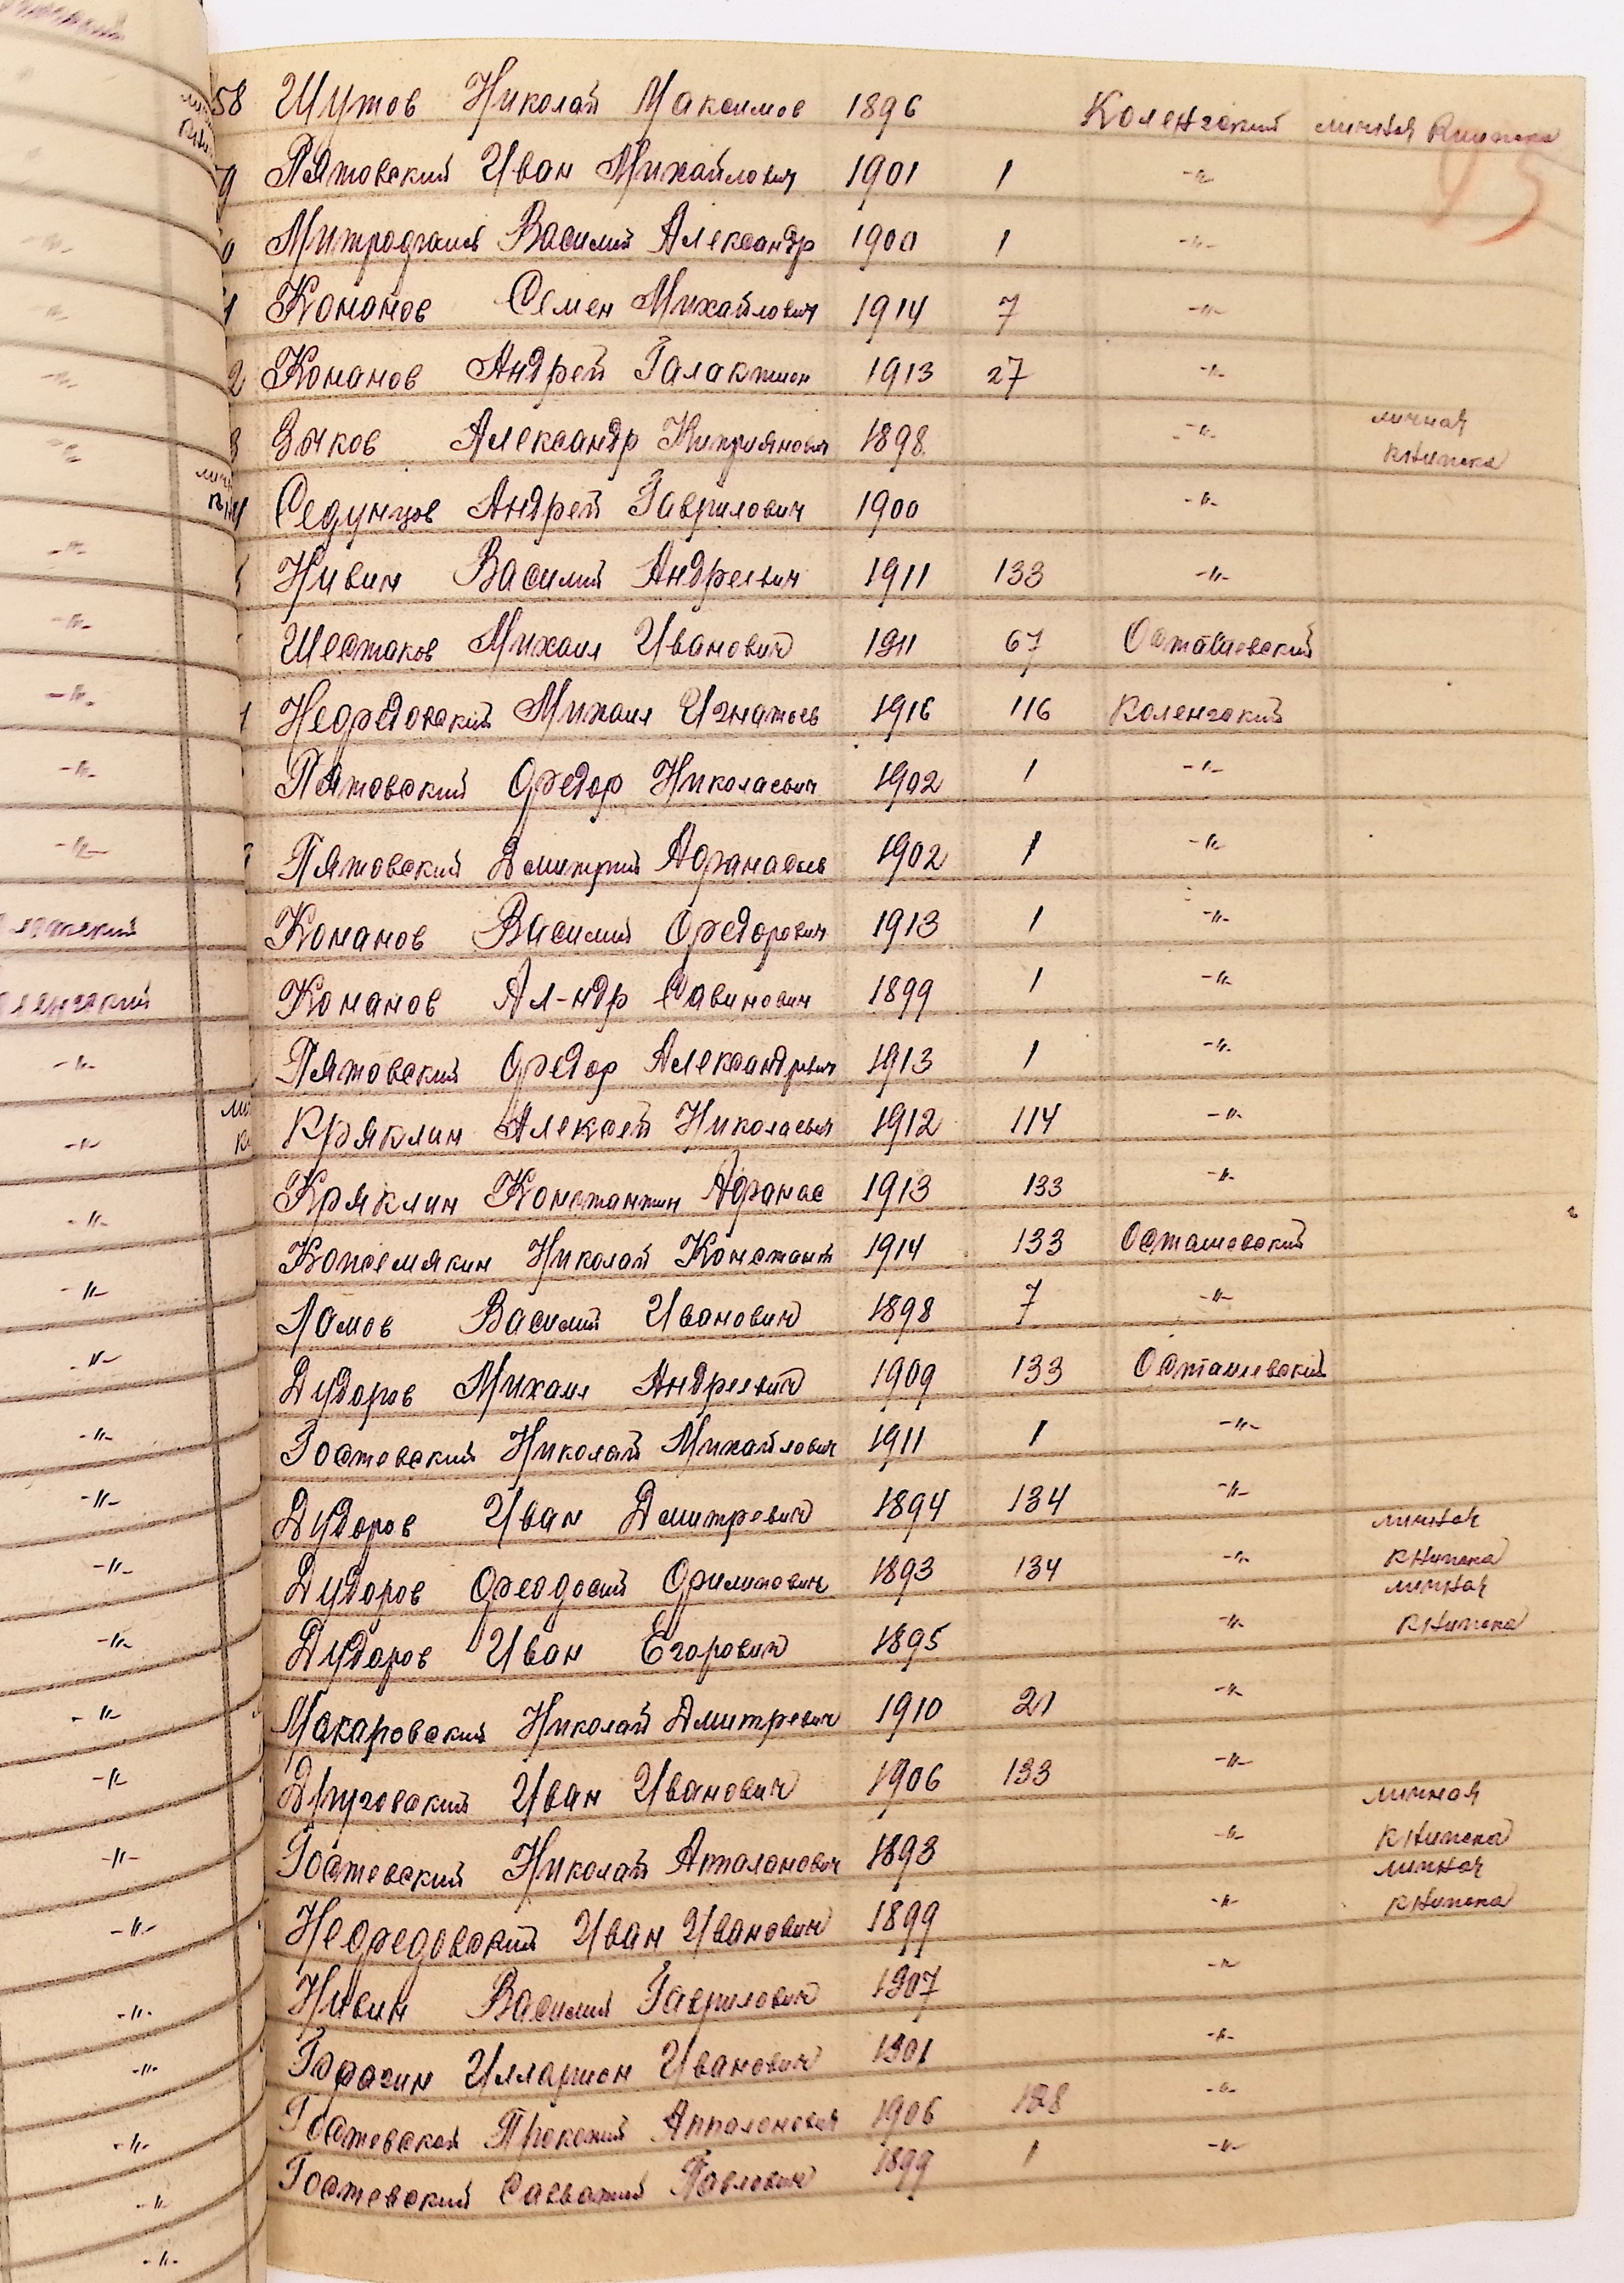 58 Шутов Николай Максимов 1896 Коленгский личная книжка
9 Пятовский Иван Михайлович 1901 1 -"-
0 Митрофанов Василий Александр 1900 1 -"-
1 Конанов Семен Михайлович 1914 7 -"-
2 Конанов Андрей Галактион 1913 27 -"-
3 Зыков Александр Киприянович 1898 -"- личная книжка
4 Седунцов Андрей Гаврилович 1900 -"-
Нивин Василий Андреевич 1911 133 -"-
Шестаков Михаил Иванович 1911 67 Осташевский
Нефедовский Михаил Игнатьев 1916 116 Коленгский
Пятовский Федор Николаевич 1902 1 -"-
Пятовский Дмитрий Афанасьев 1902 1 -"-
Конанов Василий Федорович 1913 1 -"-
Конанов Ал-ндр Савинович 1899 1 -"-
Пятовский Федор Александрович 1913 1 -"-
Кряклин Алексей Николаевич 1912 114 -"-
Кряклин Константин Афанас 1913 133 -"-
Кожемякин Николай Констант 1914 133 Осташевский
Ламов Василий Иванович 1898 7 -"-
Дудоров Михаил Андреевич 1909 133 Осташевский
Гостевский Николай Михайлович 1911 1 -"-
Дудоров Иван Дмитревич 1894 134 -"- личная книжка
Дудоров Феодосий Филипович 1893 134 -"- личная книжка
Дудоров Иван Егорович 1895 -"-
Макаровский Николай Дмитревич 1910 21 -"-
Друговский Иван Иванович 1906 133 -"-
Гостевский Николай Апполонович 1893 -"- личная книжка
Нефедовский Иван Иванович 1899 -"- личная книжка
Нивин Василий Гаврилович 1907 -"-
Илларион Иванович 1901 -"-
Гостевской Прокопий Апполонович 1906 128 -"-
Гостевский Савватий Павлович 1899 1 -"-